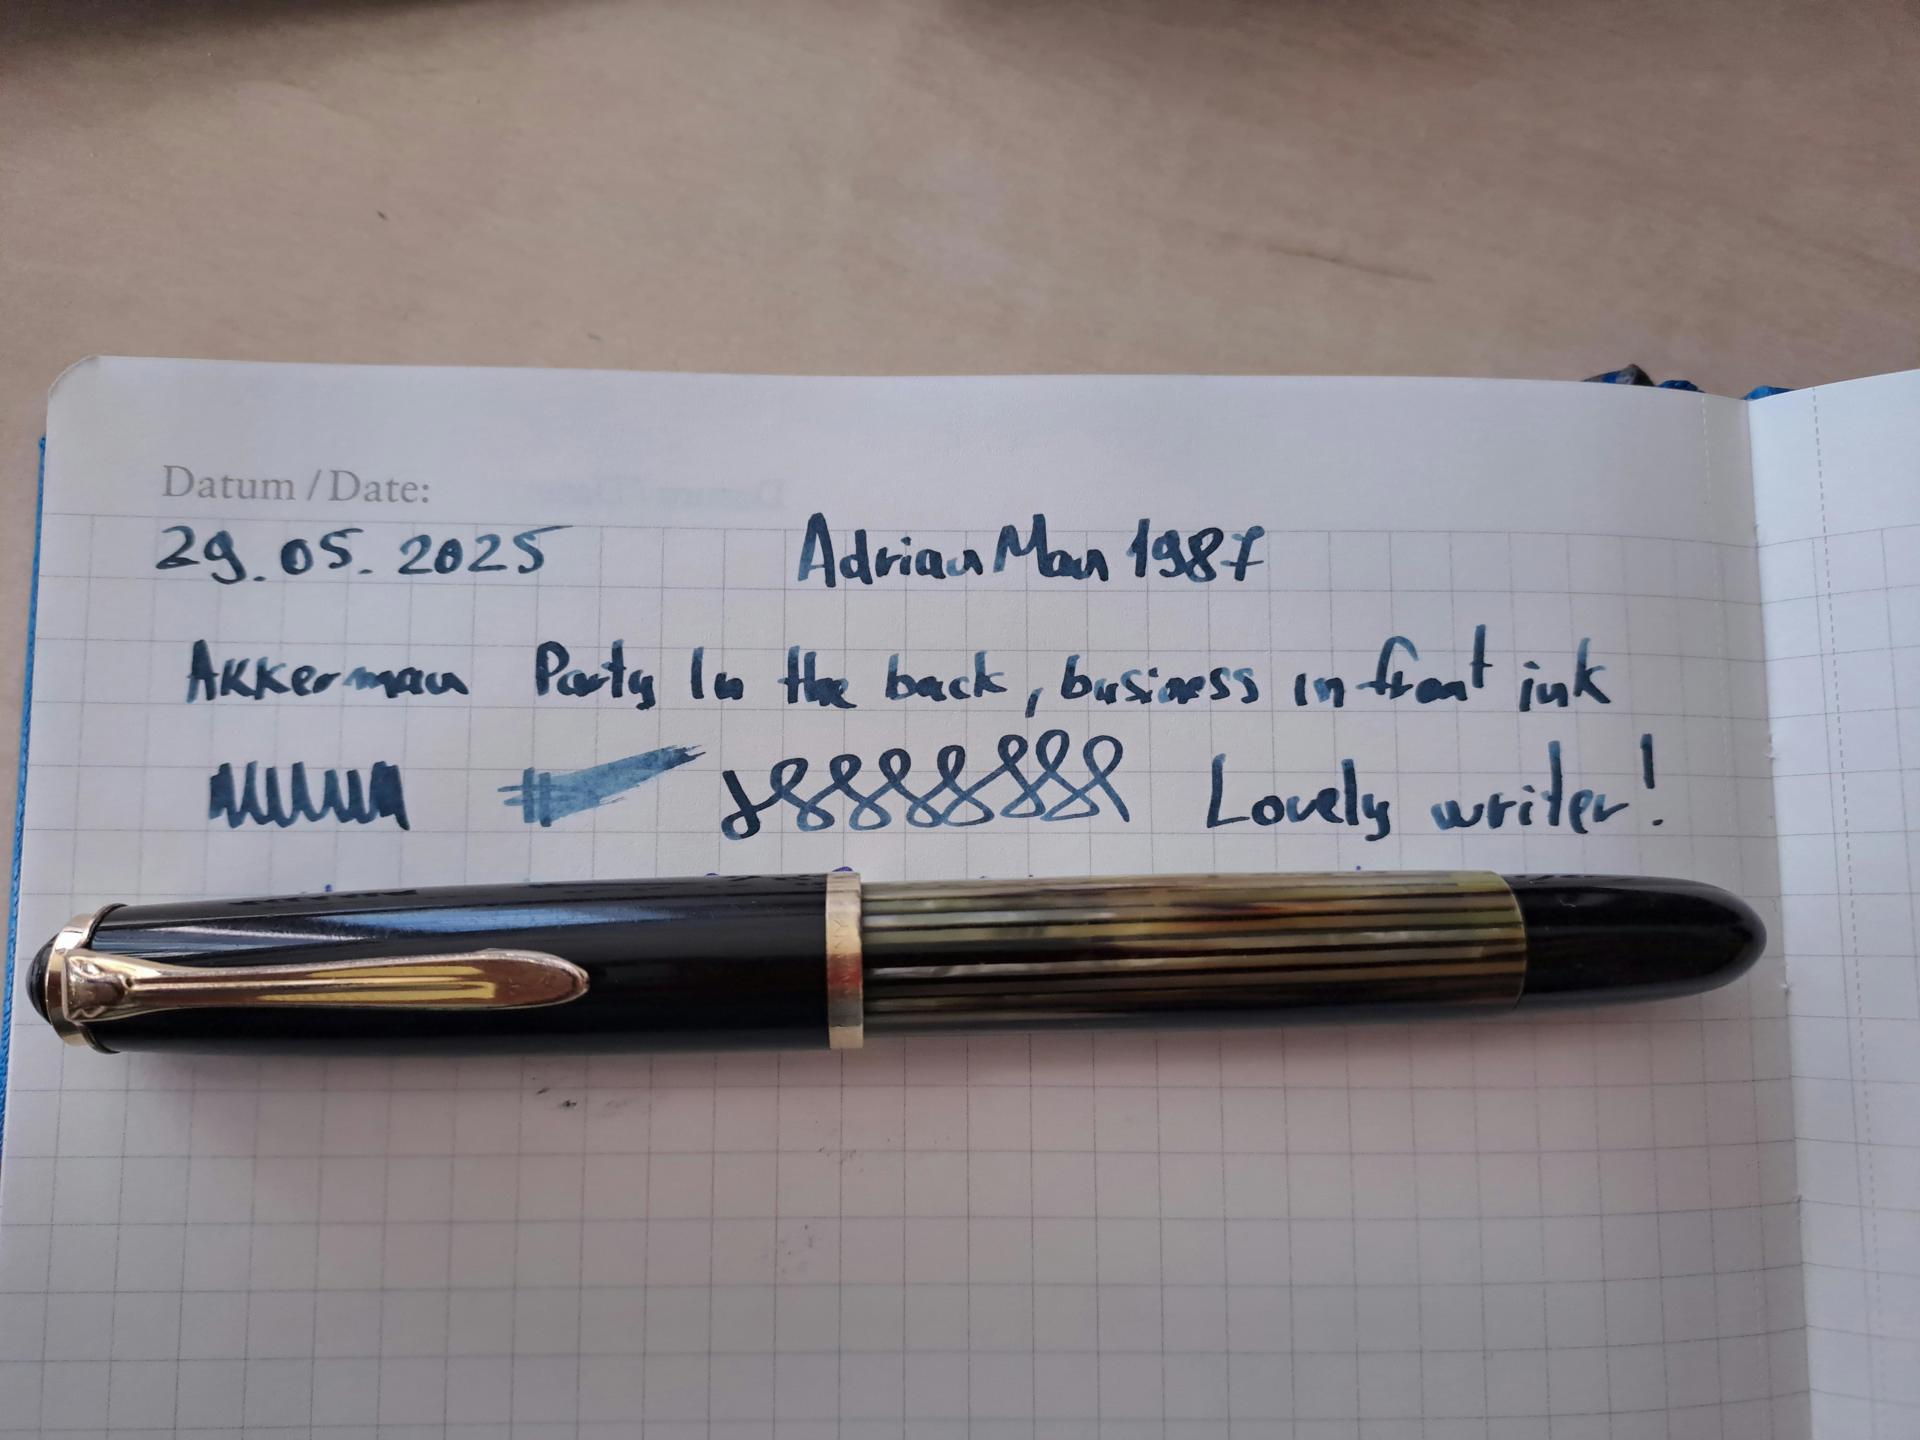 Datum / Date:
29. 05. 2025 AdrianMan 1987
Akkerman Party In the back, business in front ink
Lovely writer!